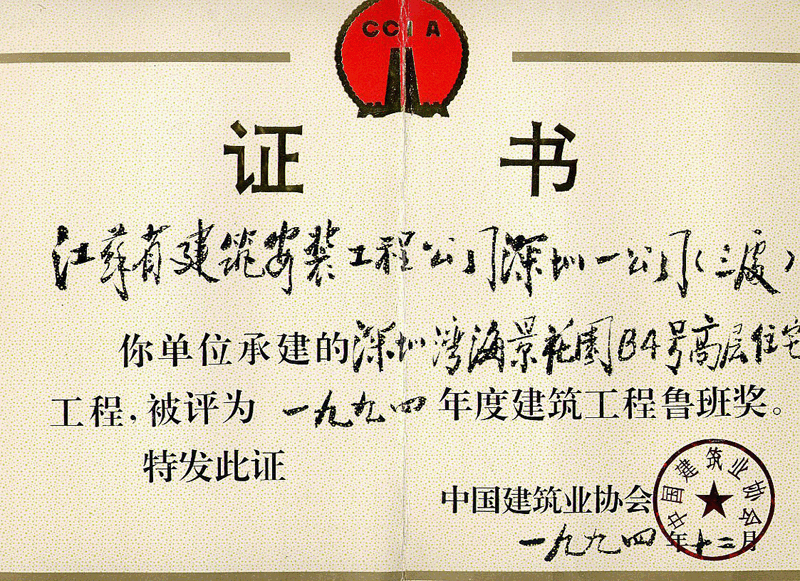 CCIA
证书
江苏省建筑安装工程公司深圳一公司(三处)
你单位承建的深圳湾海景花园B4号高层住宅
工程,被评为一九九四年度建筑工程鲁班奖。
特发此证
中国建筑业协会
中国建筑业协会
一九九四年十二月